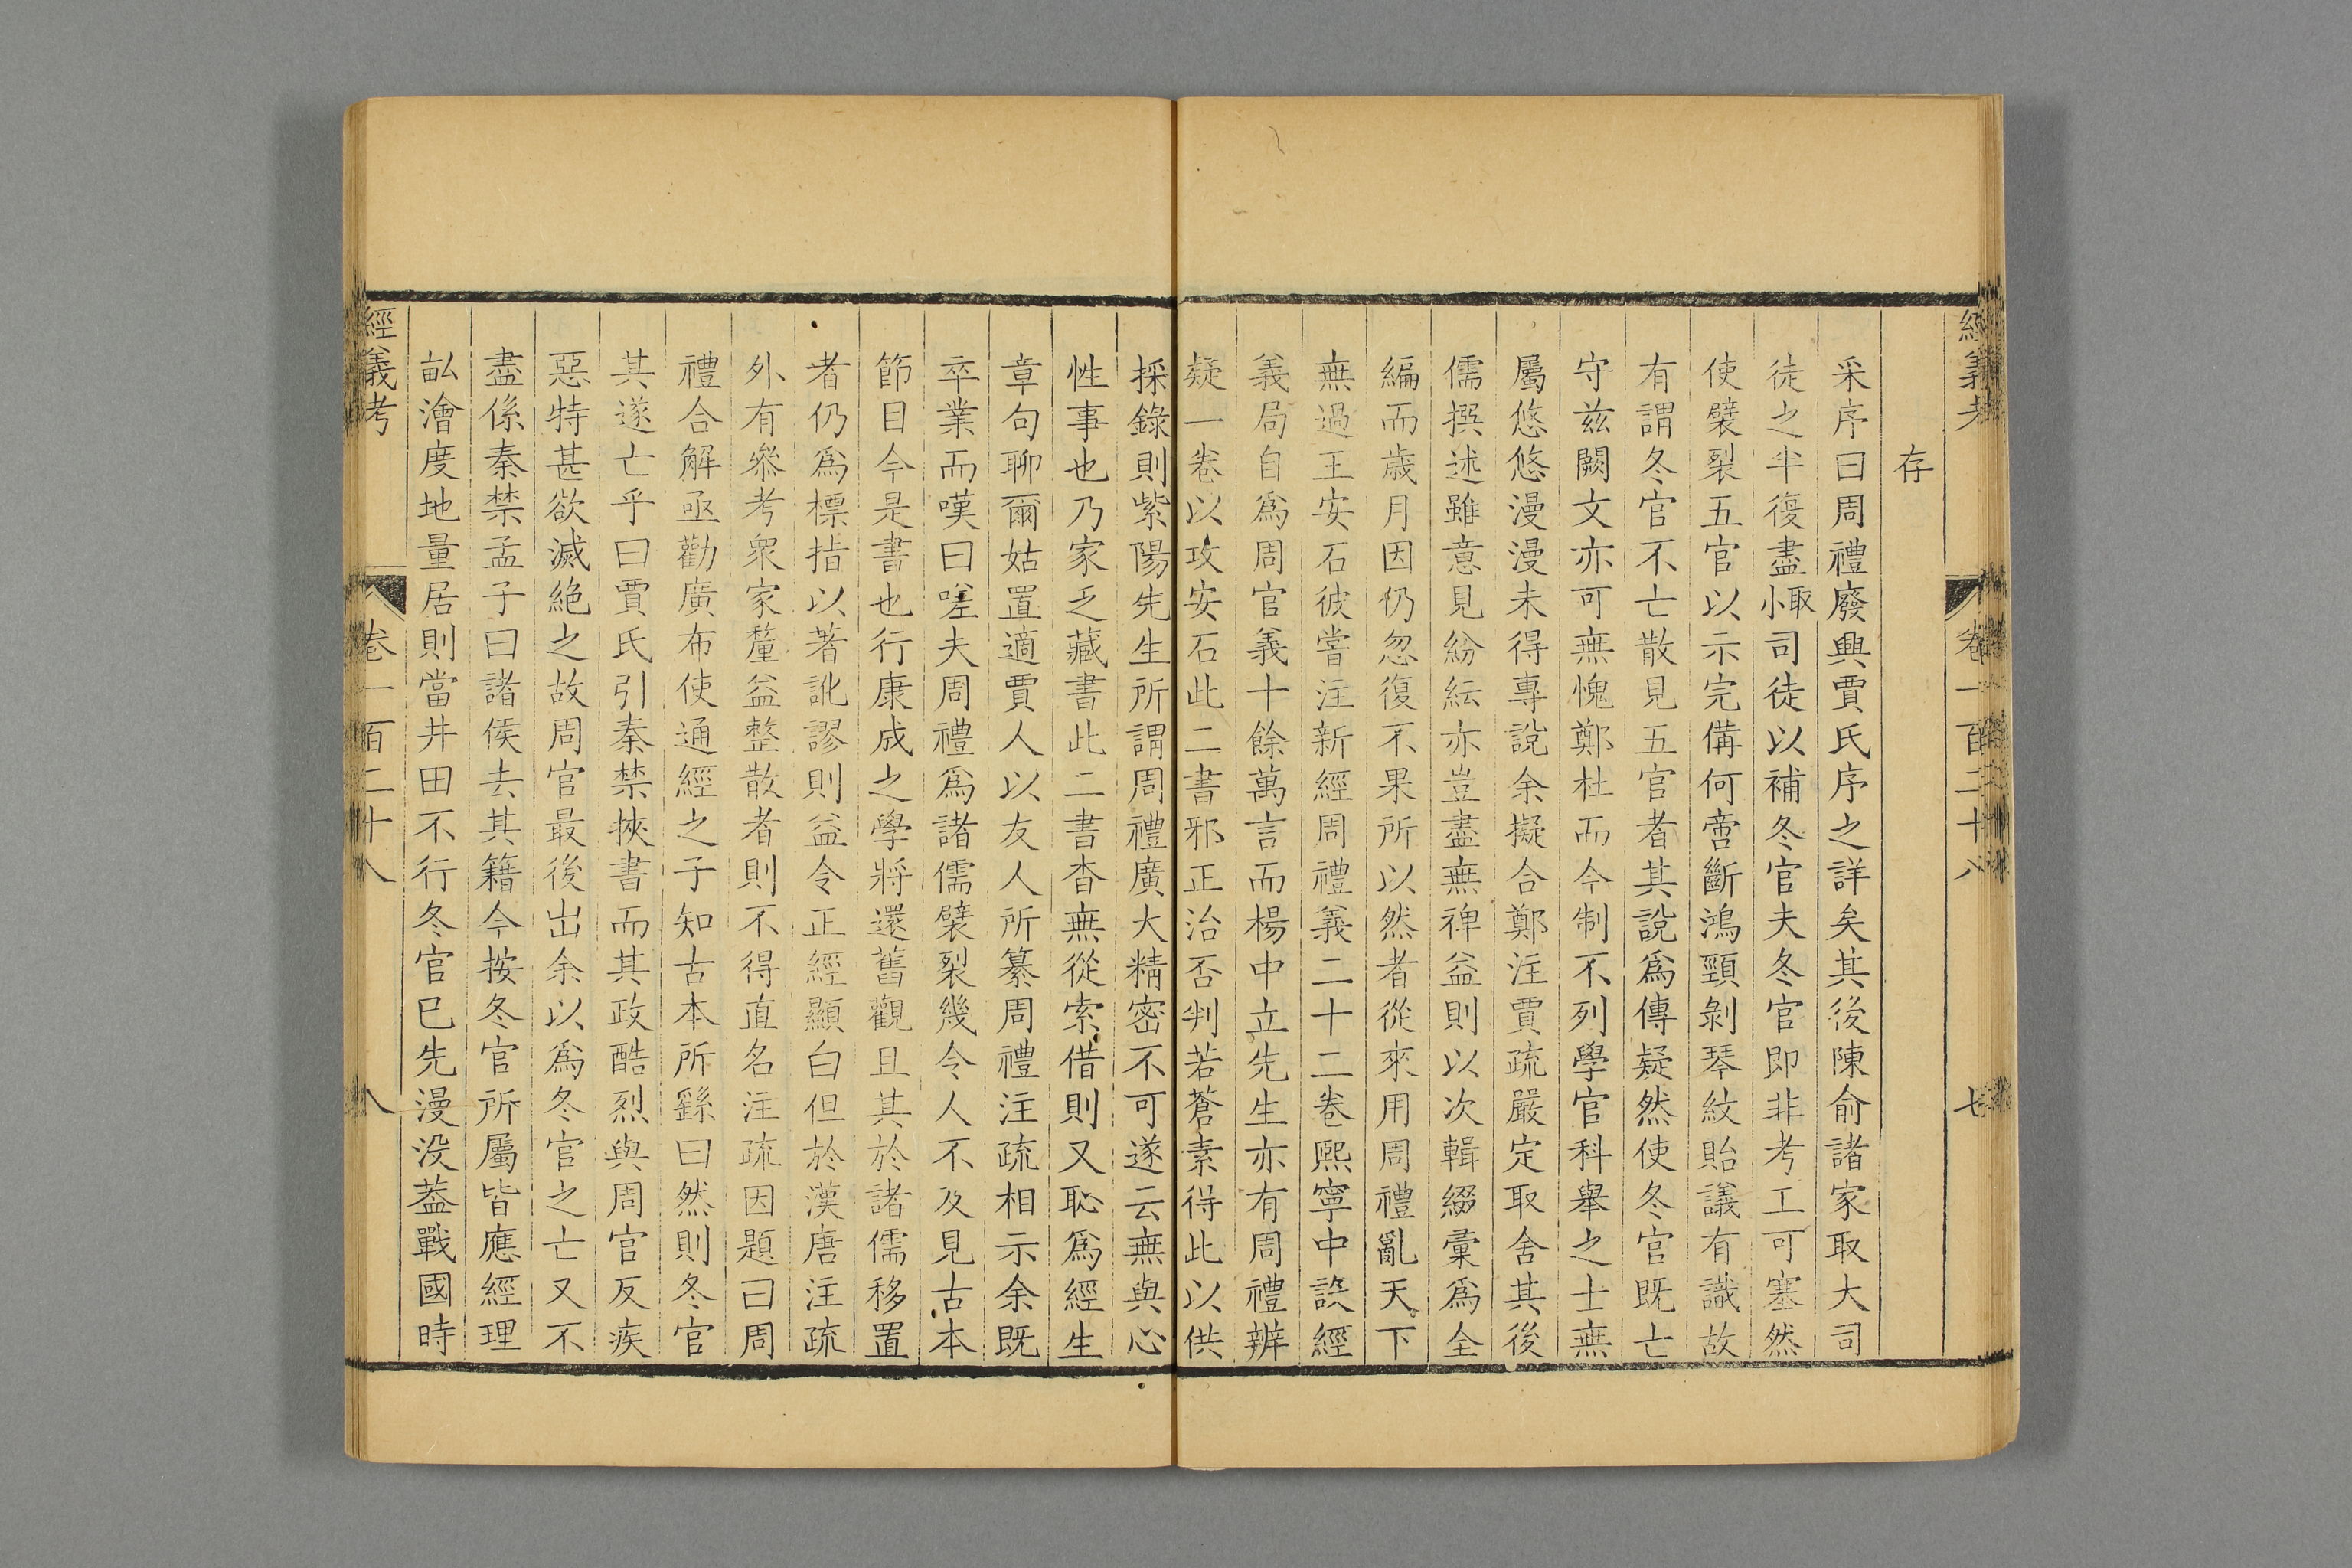 經義考 卷一百二十八 七
存
采序曰周禮廢興賈氏序之詳矣其後陳俞諸家取大司
徒之半復盡㤥司徒以補冬官夫冬官即非考工可塞然
使襞裂五官以示完備何啻斷鴻頸剝琴紋貽議有識故
有謂冬官不亡散見五官者其說爲傳疑然使冬官既亡
守兹闕文亦可無愧鄭杜而今制不列學官科舉之士無
屬悠悠漫漫未得專說余擬合鄭注賈疏嚴定取舍其後
儒撰述雖意見紛紜亦豈盡無裨益則以次輯綴彙爲全
編而歲月因仍忽復不果所以然者從來用周禮亂天下
無過王安石彼嘗注新經周禮義二十二卷熙寧中設經
義局自爲周官義十餘萬言而楊中立先生亦有周禮辨
疑一卷以攻安石此二書邪正治否判若蒼素得此以供
採錄則紫陽先生所謂周禮廣大精密不可遂云無與心
性事也乃家乏藏書此二書杳無從索借則又恥爲經生
章句聊爾姑置適賈人以友人所纂周禮注疏相示余既
卒業而嘆曰嗟夫周禮爲諸儒襞裂幾令人不及見古本
節目今是書也行康成之學將還舊觀且其於諸儒移置
者仍爲標指以著訛謬則益令正經顯白但於漢唐注疏
外有參考衆家釐益整散者則不得直名注疏因題曰周
禮合解亟勸廣布使通經之子知古本所繇曰然則冬官
其遂亡乎曰賈氏引秦禁挾書而其政酷烈與周官反疾
惡特甚欲滅絕之故周官最後出余以爲冬官之亡又不
盡係秦禁孟子曰諸侯去其籍今按冬官所屬皆應經理
畆澮度地量居則當井田不行冬官已先漫没葢戰國時
經義考 卷一百二十八 八